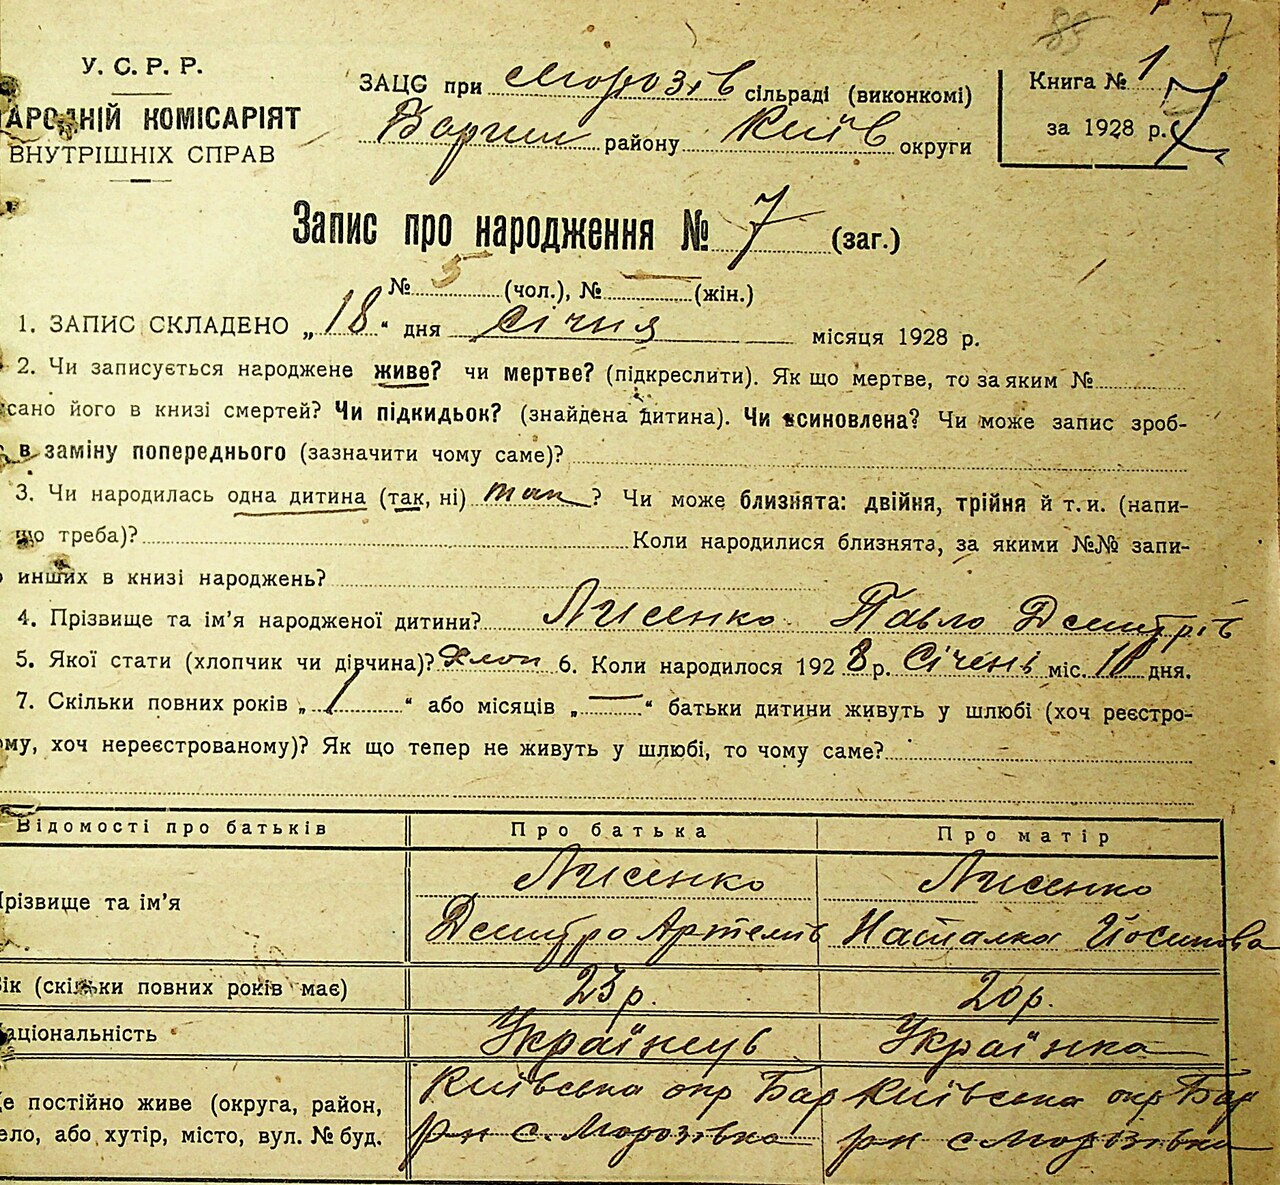 83 7
У. С. Р. Р.
АРОДНІЙ КОМІСАРІЯТ
ВНУТРІШНІХ СПРАВ
ЗАЦС при Морозів сільраді (виконкомі)
району Київ округи
Книга № 1
за 1928 р. 7
Запис про народження № 7 (заг.)
№ 5 (чол.), № — (жін.)
1. ЗАПИС СКЛАДЕНО „18“ дня Січня місяця 1928 р.
2. Чи записується народжене живе? чи мертве? (підкреслити). Як що мертве, то за яким №
сано його в книзі смертей? Чи підкидьок? (знайдена дитина). Чи всиновлена? Чи може запис зроб-
в заміну попереднього (зазначити чому саме)?
3. Чи народилась одна дитина (так, ні) так? Чи може близнята: двійня, трійня й т. и. (напи-
що треба)? Коли народилися близнята, за якими №№ запи-
о инших в книзі народжень?
4. Прізвище та ім’я народженої дитини? Лисенко Павло Дмитрів
5. Якої стати (хлопчик чи дівчина)? хлоп 6. Коли народилося 1928 р. Січень міс. 10 дня.
7. Скільки повних років „1“ або місяців „—“ батьки дитини живуть у шлюбі (хоч реєстро-
ому, хоч нереєстрованому)? Як що тепер не живуть у шлюбі, то чому саме?
Відомості про батьків Про батька Про матір
Прізвище та ім’я Лисенко Лисенко
Дмитро Артемів Наталка Йосипова
Вік (скільки повних років має) 23 р. 20 р.
Національність Українець Українка
Де постійно живе (округа, район, Київська окр Бар Київська окр Бар
село, або хутір, місто, вул. № буд. рн с. Морозівка рн с Морозівка